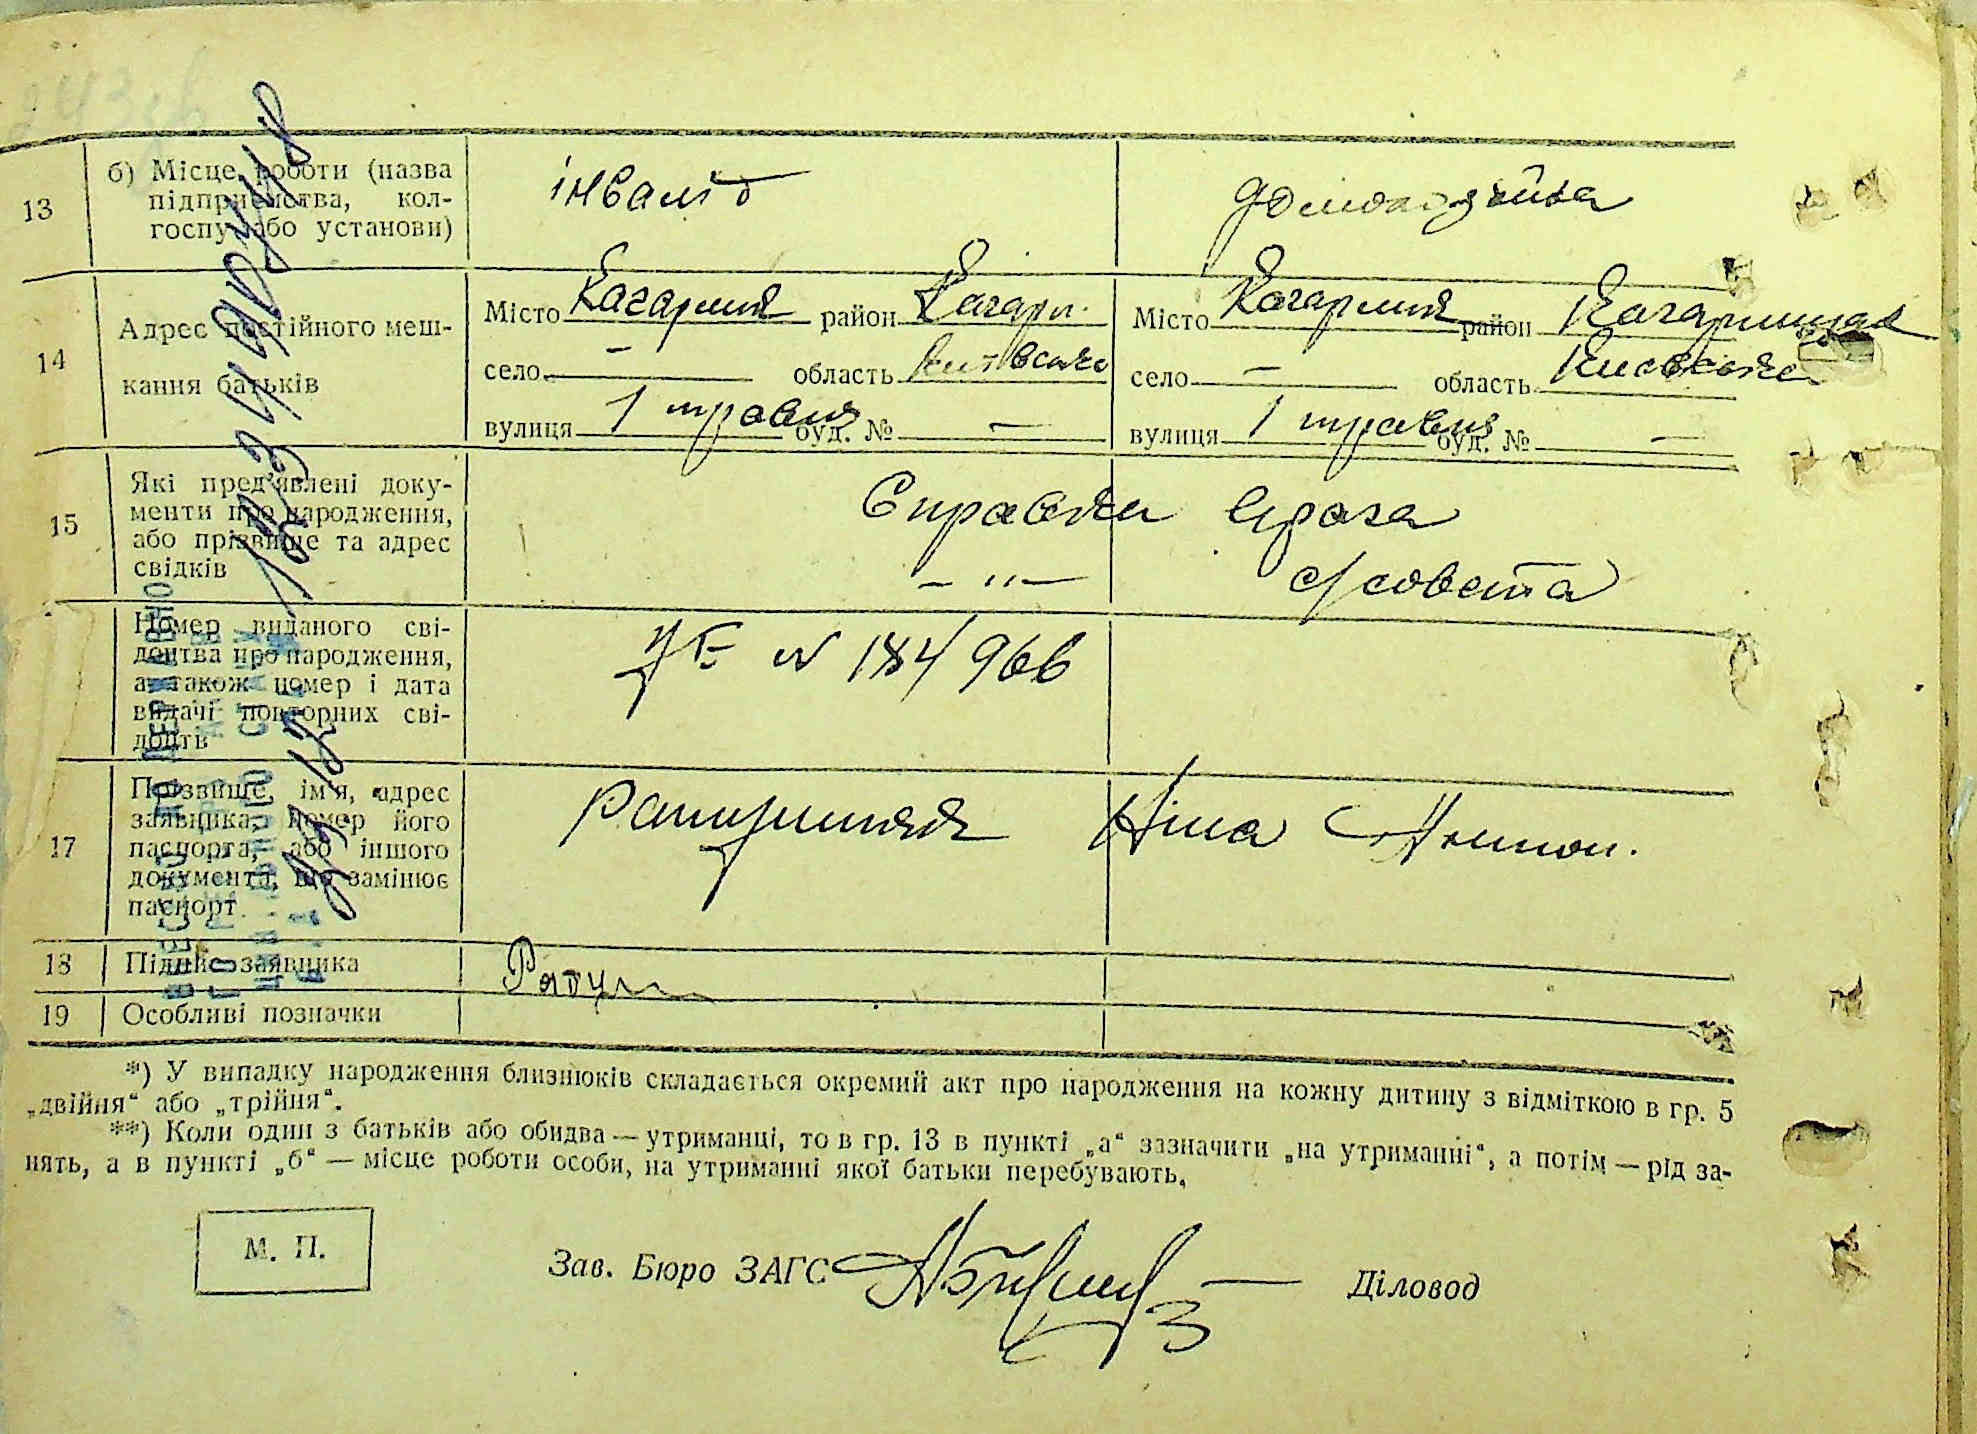 13
б) Місце роботи (назва
підприємства, кол-
госпу або установи)
інвалід
14
Адрес постійного меш-
кання батьків
Місто Кагарлик район Кагарл.
село — область Київська
вулиця 1 травня буд. № —
Місто Кагарлик район Кагарлицьк
село — область Київська
вулиця 1 травня буд. № —
15
Які пред'явлені доку-
менти про народження,
або прізвище та адрес
свідків
Справки врача
— " — с/совета
Номер виданого сві-
доцтва про народження,
а також номер і дата
видачі повторних сві-
доцтв
№ 184966
17
Прізвище, ім'я, адрес
заявника, номер його
паспорта, або іншого
документа, що замінює
паспорт
Ніна
18
Підпис заявника
19
Особливі позначки
*) У випадку народження близнюків складається окремий акт про народження на кожну дитину з відміткою в гр. 5
„двійня“ або „трійня“.
**) Коли один з батьків або обидва — утриманці, то в гр. 13 в пункті „а“ зазначити „на утриманні“, а потім — рід за-
нять, а в пункті „б“ — місце роботи особи, на утриманні якої батьки перебувають.
М. П.
Зав. Бюро ЗАГС
Діловод